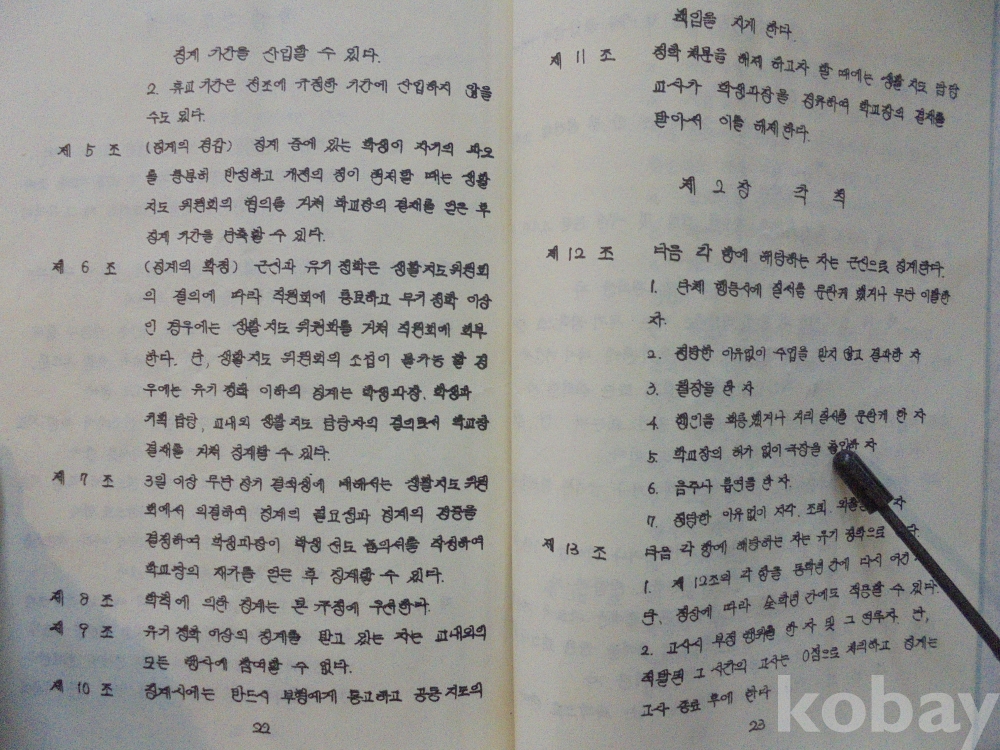 징계 기간을 산입할 수 있다.
2. 휴교 기간은 전조에 규정한 기간에 산입하지 않을
수도 있다.
제 5 조 (징계의 경감) 징계 중에 있는 학생이 자기의 과오
를 충분히 반성하고 개전의 정이 현저할 때는 생활
지도 위원회의 협의를 거쳐 학교장의 결재를 얻은 후
징계 기간을 단축할 수 있다.
제 6 조 (징계의 확정) 근신과 유기 정학은 생활지도 위원회
의 결의에 따라 직원회에 통보하고 무기 정학 이상
인 경우에는 생활 지도 위원회를 거쳐 직원회에 회부
한다. 단, 생활 지도 위원회의 소집이 불가능 할 경
우에는 유기 정학 이하의 징계는 학생과장, 학생과
기획 담당, 교내외 생활 지도 담당자의 결의로서 학교장
결재를 거쳐 징계할 수 있다.
제 7 조 3일 이상 무단 장기 결석생에 대해서는 생활지도 위원
회에서 의결하여 징계의 필요성과 징계의 경중을
결정하여 학생과장이 학생 선도 품의서를 작성하여
학교장의 재가를 얻은 후 징계할 수 있다.
제 8 조 학칙에 의한 징계는 본 규정에 우선한다.
제 9 조 유기 정학 이상의 징계를 받고 있는 자는 교내외의
모든 행사에 참여할 수 없다.
제 10 조 징계시에는 반드시 부형에게 통고하고 공동 지도의
22
책임을 지게 한다.
제 11 조 정학 처분을 해제 하고자 할 때에는 생활 지도 담당
교사가 학생과장을 경유하여 학교장의 결재를
받아서 이를 해제한다.
제 2 장 각 칙
제 12 조 다음 각 항에 해당하는 자는 근신으로 징계한다.
1. 단체 행동시에 질서를 문란케 했거나 무단 이탈한
자.
2. 정당한 이유없이 수업을 받지 않고 결과한 자
3. 월장을 한 자
4. 행인을 희롱했거나 거리 질서를 문란케 한 자
5. 학교장의 허가 없이 극장을 출입한 자
6. 음주나 흡연을 한 자.
7. 정당한 이유없이 지각, 조퇴, 자
제 13 조 다음 각 항에 해당하는 자는 유기 정학으로
1. 제 12조의 각 항을 동학년 간에 다시
단, 정상에 따라 全학년 간에도 적용할 수 있다.
2. 고사시 부정 행위를 한 자 및 그 연루자. 단,
적발된 그 시간의 고사는 0점으로 처리하고 징계는
고사 종료 후에 한다
23
kobay